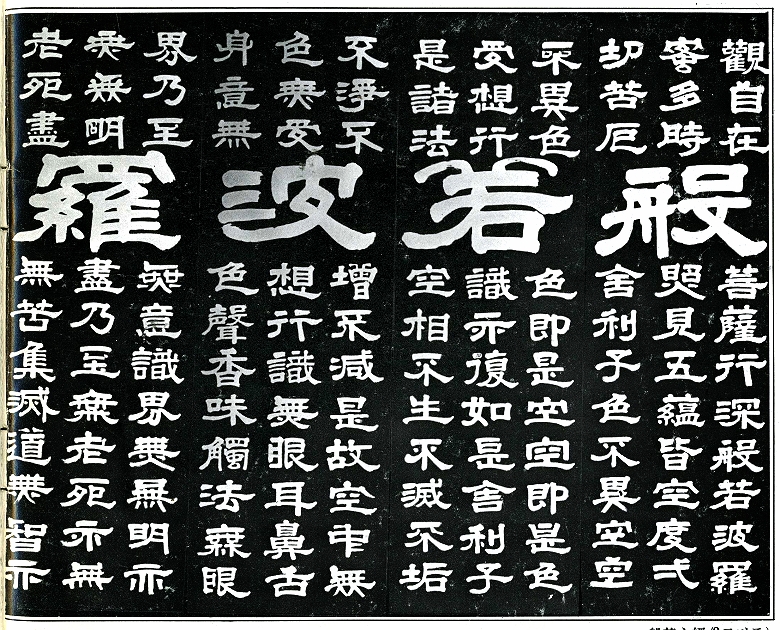 般若波羅
觀自在菩薩行深般若波羅
蜜多時照見五蘊皆空度弌
切苦厄舍利子色不異空空
不異色色即是空空即是色
受想行識亦復如是舍利子
是諸法空相不生不滅不垢
不淨不增不減是故空中無
色無受想行識無眼耳鼻舌
身意無色聲香味觸法無眼
界乃至無意識界無無明亦
無無明盡乃至無老死亦無
老死盡無苦集滅道無智亦